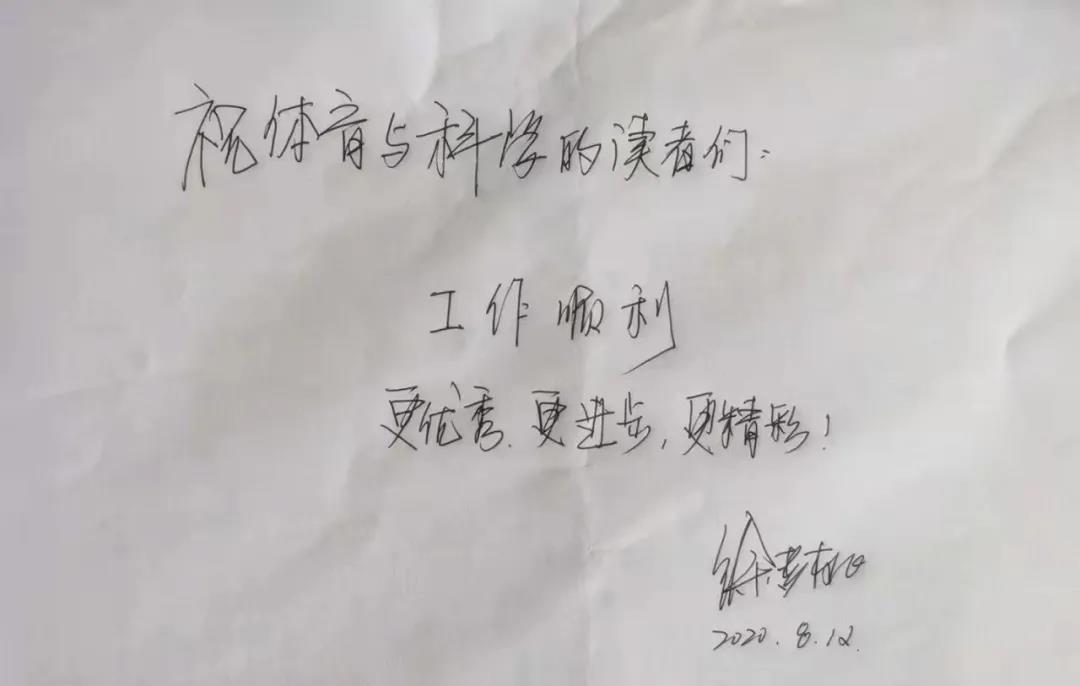 祝体育与科学的读者们：
工作顺利
更优秀、更进步，更精彩！
徐
2020.8.12.